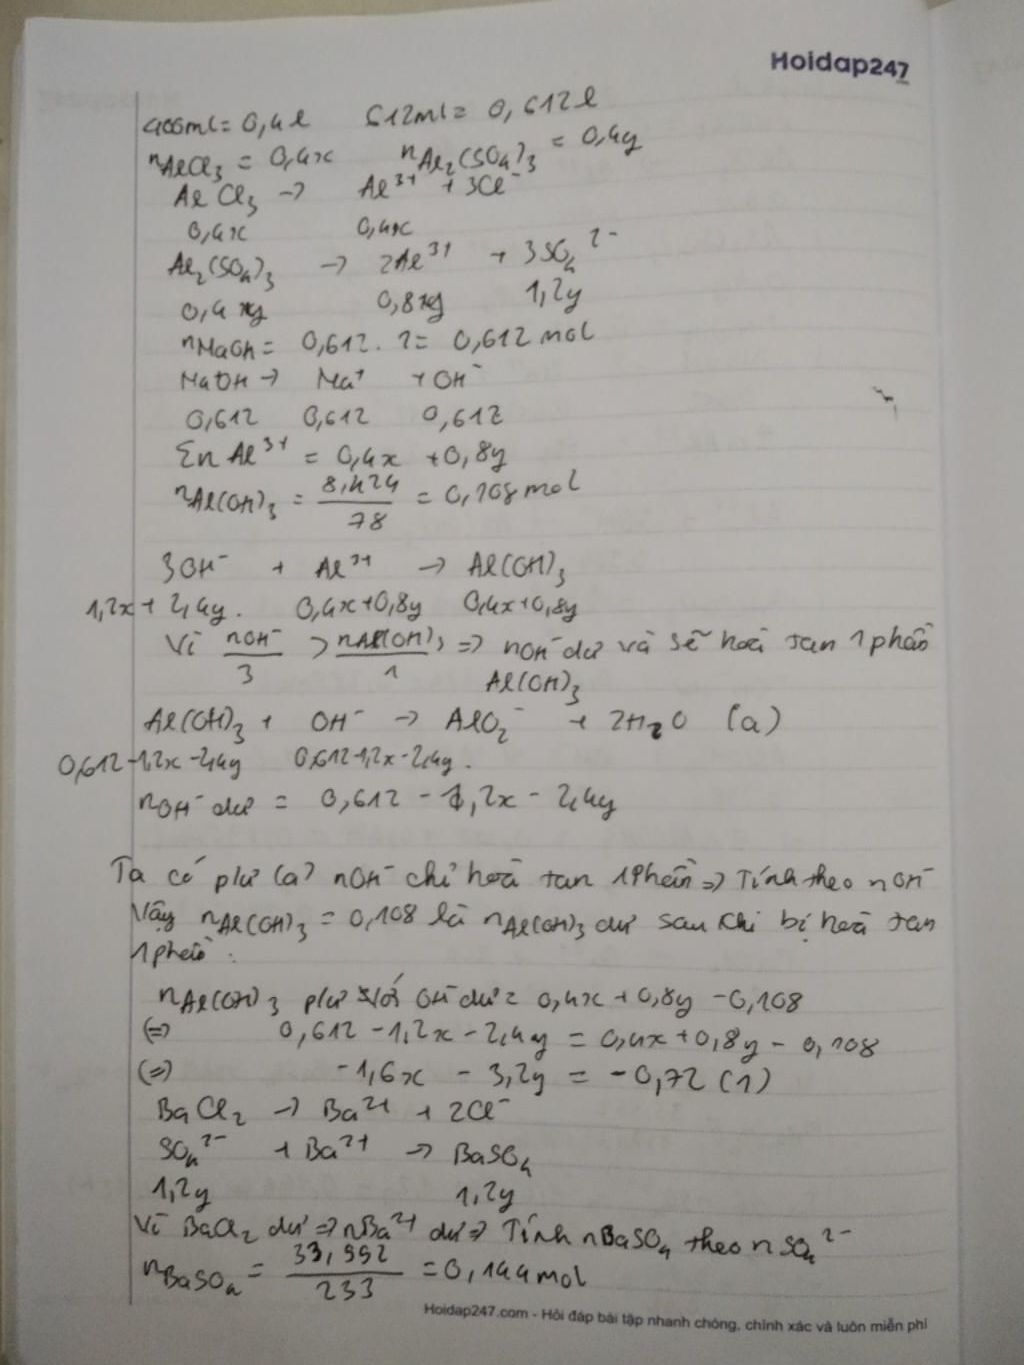 Hoidap247
400ml = 0,4l 612ml = 0,612l
nAlCl3 = 0,4x nAl2(SO4)3 = 0,4y
AlCl3 → Al3+ + 3Cl-
0,4x 0,4x
Al2(SO4)3 → 2Al3+ + 3SO4 2-
0,4y 0,8y 1,2y
nNaOH = 0,612 . 1 = 0,612 mol
NaOH → Na+ + OH-
0,612 0,612 0,612
Σn Al3+ = 0,4x + 0,8y
nAl(OH)3 = 8,424/78 = 0,108 mol
3OH- + Al3+ → Al(OH)3
1,2x + 2,4y. 0,4x+0,8y 0,4x+0,8y
Vì nOH-/3 > nAl(OH)3/1 => nOH- dư và sẽ hoà tan 1 phần
Al(OH)3
Al(OH)3 + OH- → AlO2- + 2H2O (a)
0,612-1,2x-2,4y 0,612-1,2x-2,4y.
nOH- dư = 0,612 - 1,2x - 2,4y
Ta có pư (a) nOH- chỉ hoà tan 1 phần => Tính theo nOH-
Vậy nAl(OH)3 = 0,108 là nAl(OH)3 dư sau khi bị hoà tan
1 phần.
nAl(OH)3 pư với OH- dư = 0,4x + 0,8y - 0,108
(=) 0,612 - 1,2x - 2,4y = 0,4x + 0,8y - 0,108
(=) -1,6x - 3,2y = -0,72 (1)
BaCl2 → Ba2+ + 2Cl-
SO4 2- + Ba2+ → BaSO4
1,2y 1,2y
Vì BaCl2 dư => nBa2+ dư => Tính nBaSO4 theo nSO4 2-
nBaSO4 = 33,552/233 = 0,144 mol
Hoidap247.com - Hỏi đáp bài tập nhanh chóng, chính xác và luôn miễn phí